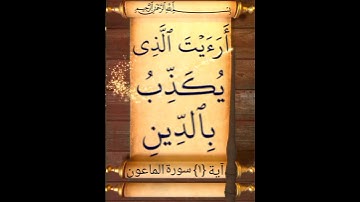 بسم الله الرحمن الرحيم
أَرَءَيْتَ ٱلَّذِى
يُكَذِّبُ
بِٱلدِّينِ
آية {١} سورة الماعون